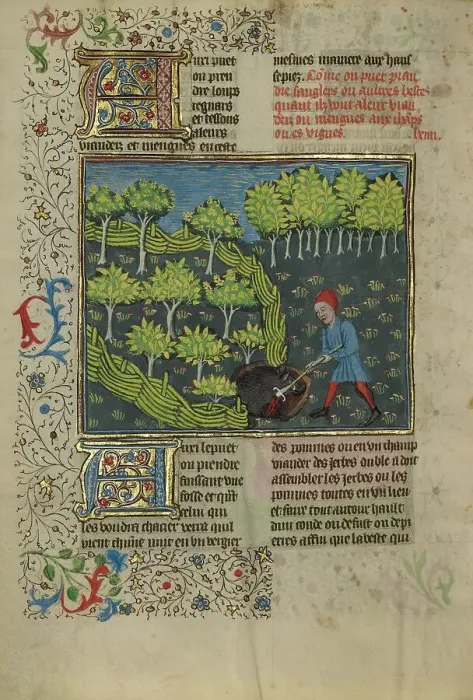 Auxi puet
on pren
dre loups
regnars
et tessons
aleurs
viandez et menques en ceste
mesmes maniere aux hauf
sepiez. Come on puet pran
dre sanglers ou aultres bestes
quant ilz vont aleur vian
dez ou menques aux chaps
ou es vignes.
Auxi le puet
on prendre
sans faire une
fosse et qui
celui qui
les vouldra chacier verra quil
vient chune nuit en un vergier
des pommes ou en un champ
viander des ierbes ou ble il doit
assembler les ierbes ou les
pommes toutes en un lieu
et faire tout autour hault
dun coude ou
erres affin que la beste qui